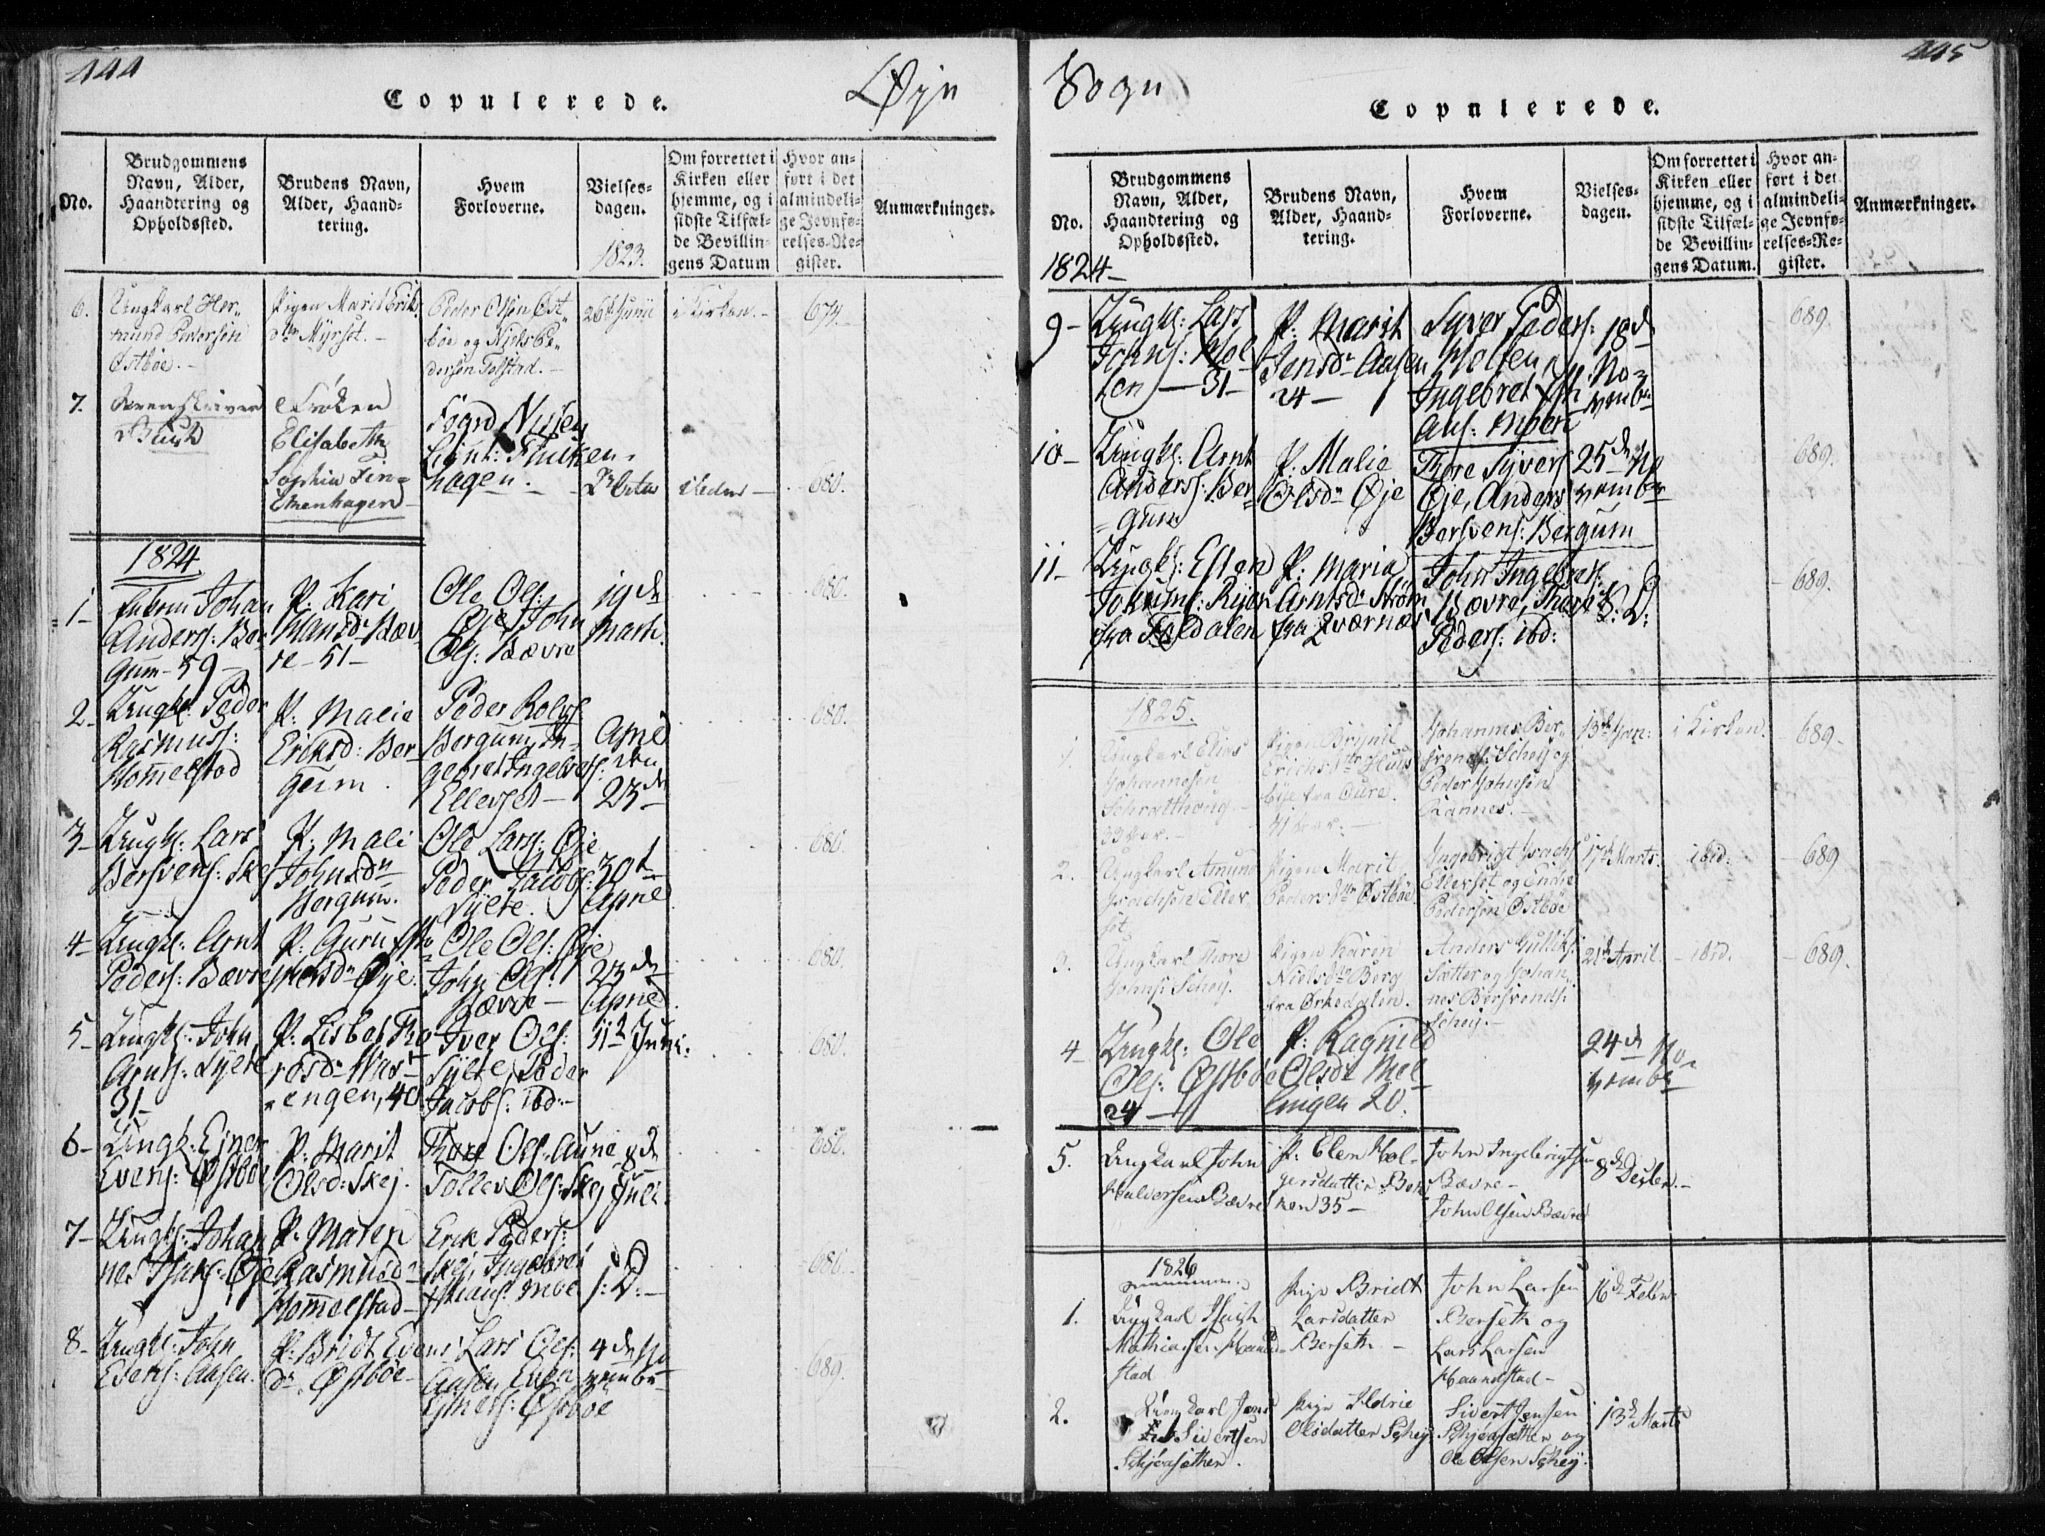 444
Copulerede.
Øye
No.
Brudgommens
Navn, Alder,
Haandtering og
Opholdssted.
Brudens Navn,
Alder, Haand-
tering.
Hvem
Forloverne.
Vielses-
dagen.
1823.
Om forrettet i
Kirken eller
hjemme, og i
sidste Tilfæl-
de Bevillin-
gens Datum
Hvor an-
ført i det
almindeli-
ge Jevnfø-
relses-Re-
gister.
Anmærkninger.
6.
Ungkarl Her-
mund Pedersen
Østbøe.
Pigen Marit Eriks
dtr Myrset.
Peder Olsen Øst
bøe og Niels Pe
dersen Tolstad.
26de Junii
i Kirken.
679
7.
Sorenskriver
Frøken
Elisabeth
Sophia Fin-
ckenhagen
Fogd Nissen
Lieut: Fincken-
hagen.
680.
1824.
1-
Johan
Anders: Ber
gum - 59
P. Kari
Hansdr Bæv
re - 51
Ole Ols:
Øye John
Ols: Bævre
19de
Marti.
680.
2-
Ungk: Peder
Rasmuss:
Hommelstad
P. Malie
Eriksd: Ber-
geim.
Peder Rolvs
Bergum, In-
gebret Ingebrets:
Ellevset
April
den
23de
680.
3-
Ungk: Lars
Bersvens: Skej
P. Mali
Johnsdr
Bergum.
Ole Lars: Øje
Peder Jacobs:
Sylte.
30te
April
680.
4-
Ungk: Arnt
Peders: Bævre
P. Guru
Øje.
Ole Ols: Øje
John Ols:
Bævre
23de
April
680.
5-
Ungk: John
Arnts: Sylte
31-
P. Lisbet To
resdr Was-
engen, 40
Iver Ols:
Sylte, Peder
Jacobs: ibd:
11te Juni.
680.
6-
Ungk: Ejner
Evens: Østbøe
P. Marit
Olsd: Skej.
Thore Ols: Aune
Tollev Ols: Skej
8de
Juli.
680.
7-
Ungk: Johan
nes Isaks: Øje
P. Maren
Rasmusdr
Hommelstad
Erik Peders:
Skej, Ingebret
Moe
s: D:
680.
8-
Ungk: John
Esens: Aasen.
P. Bridt Evens
dr. Østbøe
Lars Ols:
Aasen, Even
Ejners: Østbøe
4de No
vember
689.
Sogn
445
Copulerede.
No.
Brudgommens
Navn, Alder,
Haandtering og
Opholdssted.
Brudens Navn,
Alder, Haand-
tering.
Hvem
Forloverne.
Vielses-
dagen.
Om forrettet i
Kirken eller
hjemme, og i
sidste Tilfæl-
de Bevillin-
gens Datum.
Hvor an-
ført i det
almindeli-
ge Jevnfø-
relses-Re-
gister.
Anmærkninger.
1824
9-
Ungk: Lars
Johns: Hol
ten - 31-
P. Marit
Jensdr Aasen
24-
Syver Peders:
Holten,
Ingebret
Moen
18de
No-
vember
689.
10-
Ungk: Arnt
Anderss: Ber-
gum
P. Malie
Olsdr Øje
Thore Syvers
Øje, Anders
Bersvens: Bergum
25de No
vember
689.
11-
Ungk: Esten
Joh
fra Foldalen
P. Maria
Arntsdr Strøm
fra Qværnæs
John Ingebrek:
Bævre, Thore
Peders: ibd:
S: D:
689.
1825.
1.
Ungkarl Elias
Johannesen
33 Aar.
Pigen Brynil
Erichsdtr Huus
bye fra Øure.
31 Aar.
Johannes Ber-
svends: Schej og
Peder Johnsen
Kannes.
13de Jan:
i Kirken.
689.
2.
Ungkarl Amund
Isachsen Eller
set
Pigen Marit
Pedersdtr Østbøe
Ingebrigt Isachs
Ellerset og Endre
Pedersen Østbøe
17de Marts.
ibid:
689
3.
Ungkarl Thore
Johns: Schej.
Pigen Karen
Nielsdtr Berg
fra Orkedalen.
Anders Gulliks:
Sætter og Johan-
nes Bersvends:
Schej.
21de April.
ibid.
689.
4
Ungk: Ole
Ols: Østbøe
24-
P: Ragnild
Olsdr Mel-
lingen 20.
24de No-
vember
5.
Ungkarl John
Halversen Bævre
P: Elen Hol-
gersdatter
35-
John Ingebrigtsen
Bævre-
John Olsen Bævre
8de Decbr.
1826
1.
Ungkarl
Mathiasen Haand-
stad
Pige Bridt
Larsdatter
Berseth
John Larsen
Berseth og
Lars Larsen
Haandstad-
16de Febr.
2.
Ungkarl Jens
Sivertsen
Schjøsæther.
Pige Ildrie
Olsdatter Schej
Sivert Jensen
Schjøsæther og
Ole Olsen Schej.
13de Marts